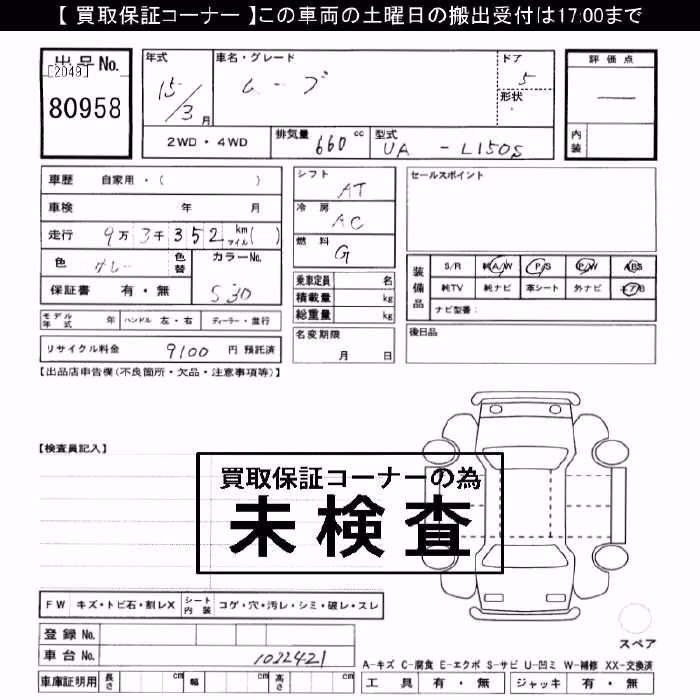 【 買取保証コーナー 】この車両の土曜日の搬出受付は17:00まで
出品No.
[2049]
80958
年式
15/3月
車名・グレード
ムーブ
ドア
5
形状
評価点
内装
2WD・4WD
排気量 660 cc
型式 UA - L150S
車歴 自家用・( )
車検 年 月
走行 9万3千352 km マイル( )
色 グレー
色替
カラーNo. S30
保証書 有・無
シフト AT
冷房 AC
燃料 G
乗車定員 名
積載量 kg
総重量 kg
名変期限
月 日
セールスポイント
装備品
S/R 純A/W P/S P/W ABS
純TV 純ナビ 革シート 外ナビ エアB
ナビ型番:
後日品
モデル年式 年 ハンドル 左・右 ディーラー・並行
リサイクル料金 9100 円 預託済
【出品店申告欄(不良箇所・欠品・注意事項等)】
【検査員記入】
買取保証コーナーの為
未検査
FW キズ・トビ石・割レX シート内装 コゲ・穴・汚レ・シミ・破レ・スレ
登録No.
車台No. 1022421
車庫証明用 長さ cm 幅 cm 高さ cm
スペア
A-キズ C-腐食 E-エクボ S-サビ U-凹ミ W-補修 XX-交換済
工具 有・無 ジャッキ 有・無